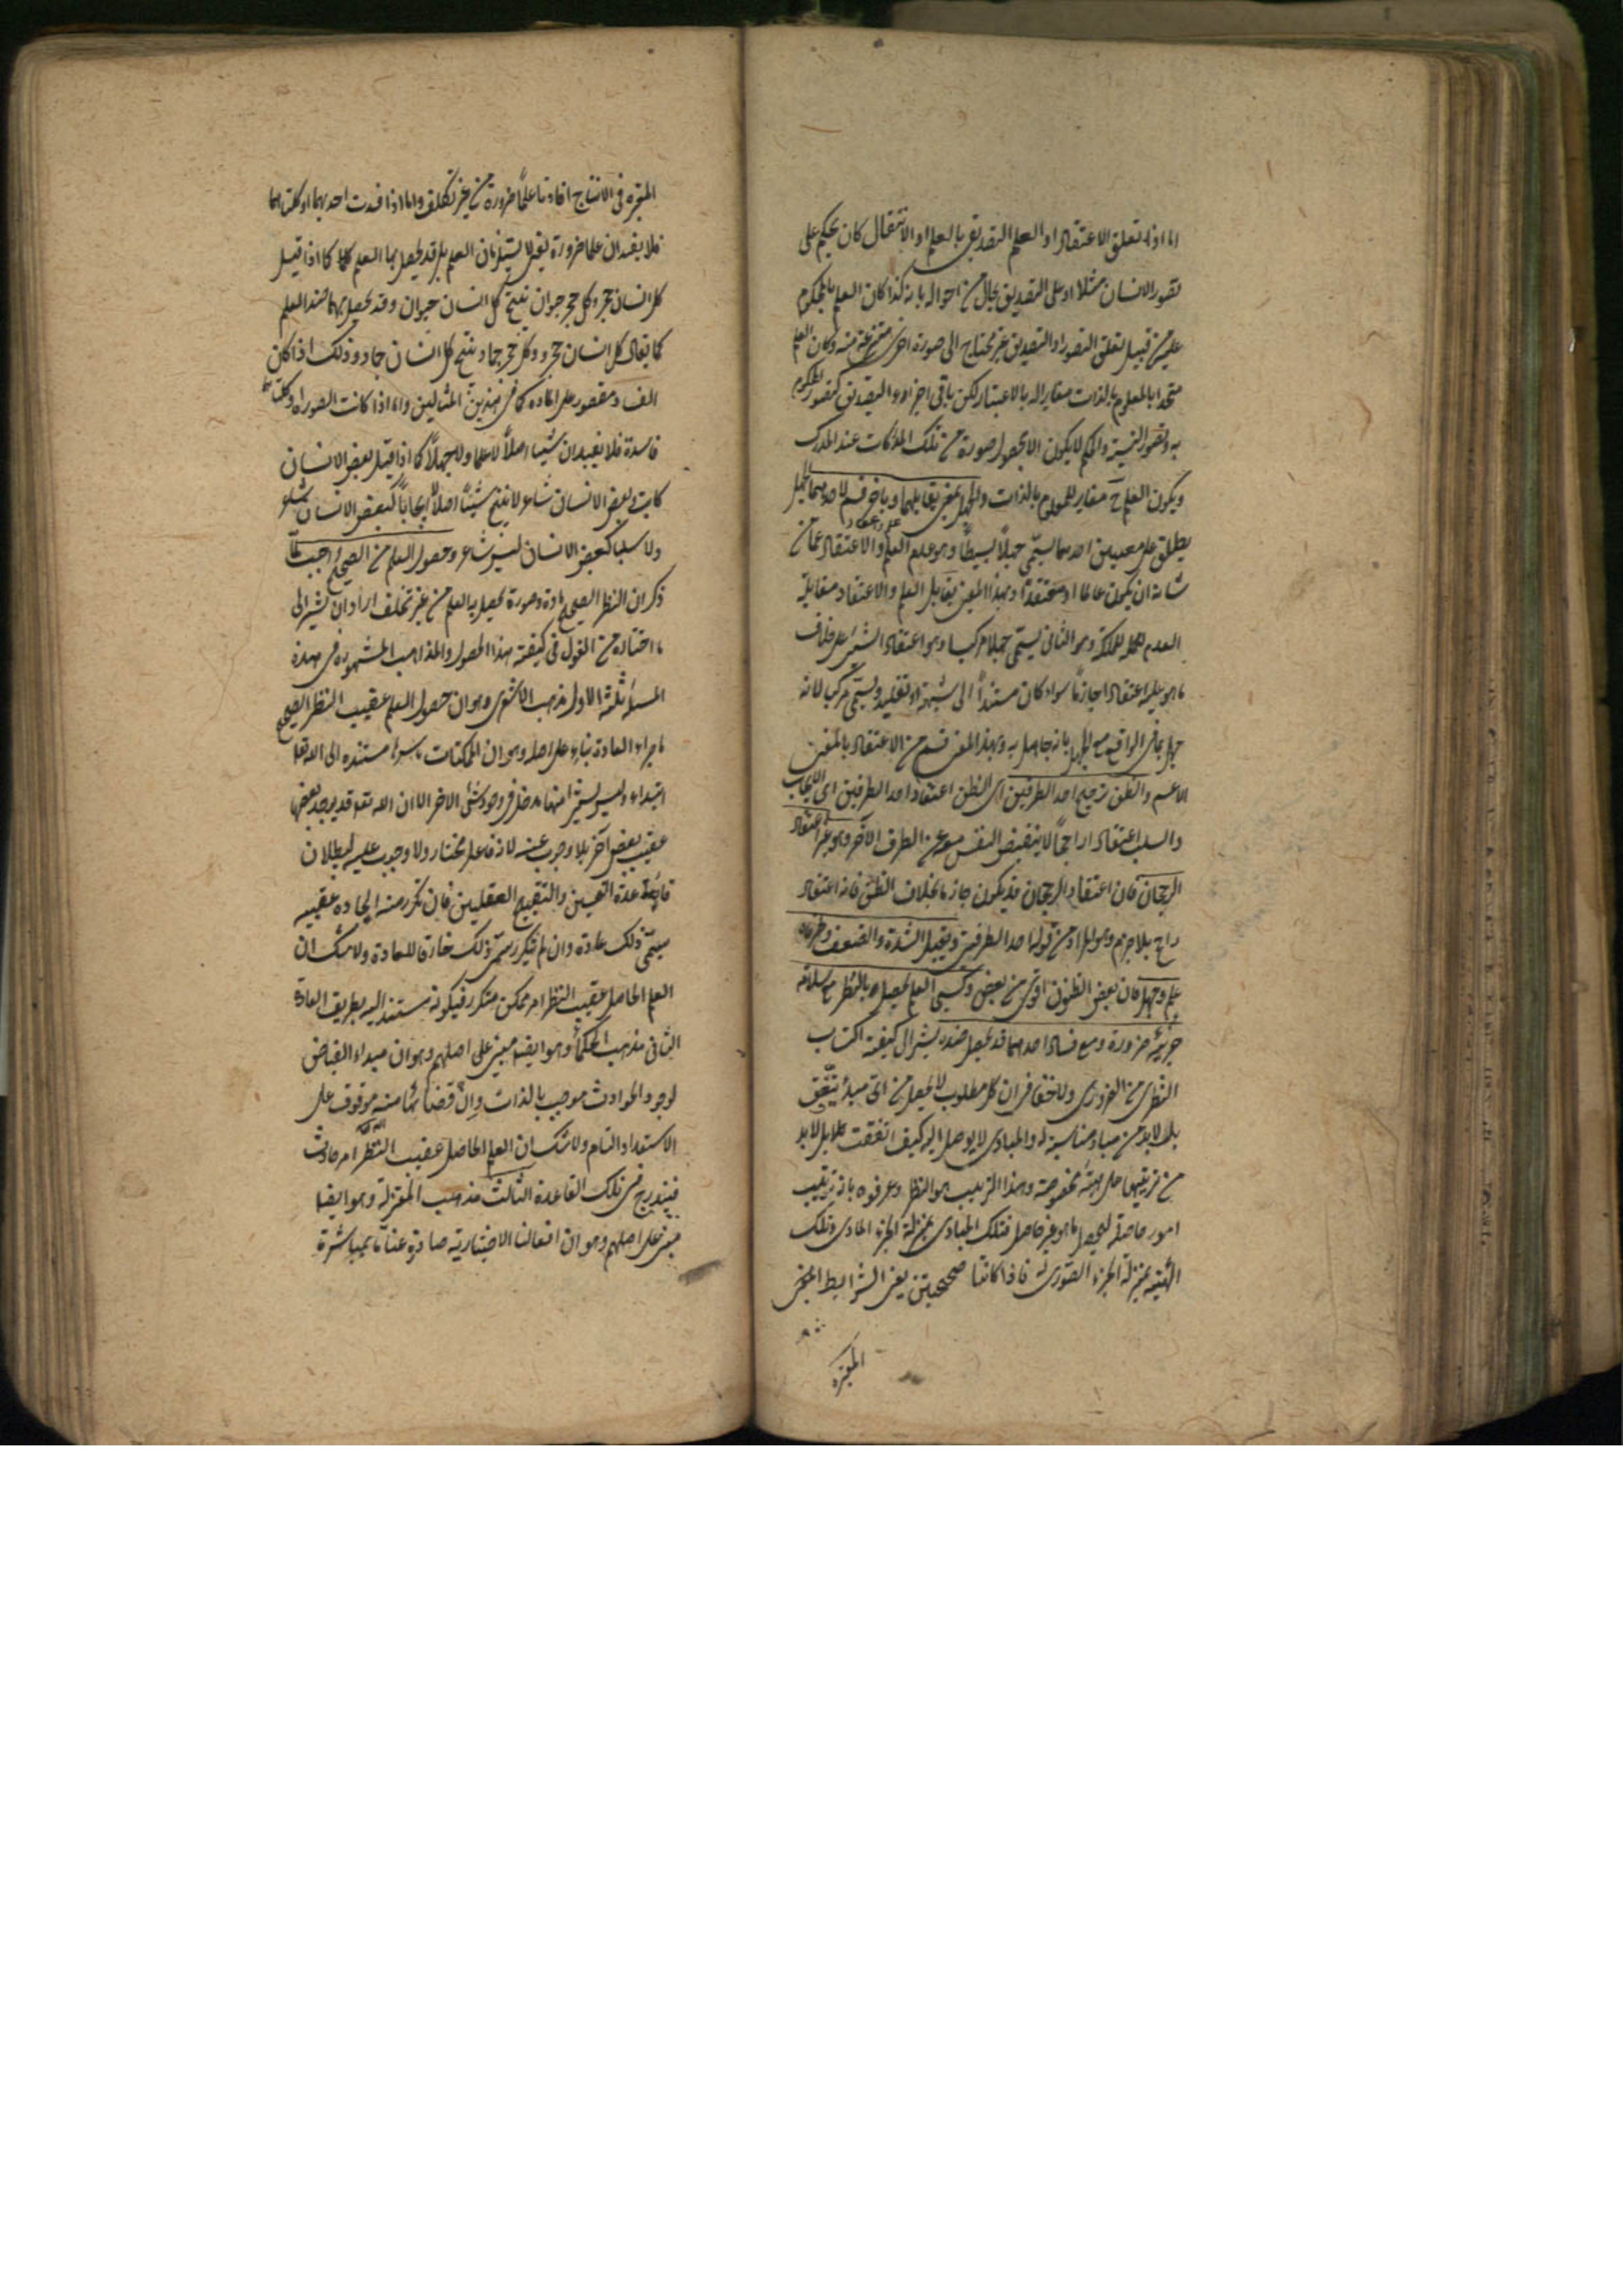 اما اذا تعلق الاعتقاد او العلم التصديقى بالعلم او الانتقال كان يحكم على
تصور الانسان مثلا او على التصديق بحال من احواله بانه كذا كان العلم بالمحكوم
عليه من قبيل تعلق التصور او التصديق غير محتاج الى صورة اخرى منتزعة منه وكان العلم
متحدا بالمعلوم بالذات مغايرا له بالاعتبار لكن باقى اجزاء التصديق كتصور المحكوم
به وتصور النسبة والحكم لا يكون الا بحصول صورة من تلك المدركات عند المدرك
ويكون العلم ح مغاير للمعلوم بالذات والجهل بمعنى يقابلهما وباخر قسم لاحدهما الجهل
يطلق على معنيين احدهما يسمى جهلا بسيطا وهو عدم العلم والاعتقاد عما من
شانه ان يكون عالما او معتقدا وبهذا المعنى يقابل العلم والاعتقاد مقابلة
العدم للملكة وهو الثانى يسمى جهلا مركبا وهو اعتقاد الشئ على خلاف
ما هو عليه اعتقادا جازما سواء كان مستندا الى شبهة او تقليد ويسمى مركبا لانه
جهل بما فى الواقع مع الجهل بانه جاهل به وبهذا المعنى قسم من الاعتقاد بالمعنى
الاعم والظن ترجيح احد الطرفين اى الظن اعتقاد احد الطرفين اى الايجاب
والسلب اعتقادا راجحا لا ينقبض النفس معه عن الطرف الآخر وهو غير اعتقاد
الرجحان فان اعتقاد الرجحان قد يكون جازما بخلاف الظن فانه اعتقاد
راجح بلا جزم وهو المراد من قوله احد الطرفين ويقبل الشدة والضعف وطرفاه
علم وجهل فان بعض الظنون اقوى من بعض وكسبى العلم يحصل بالنظر مع سلامة
جزئيه ضرورة ومع فساد احدهما قد يحصل ضده يشير الى كيفية اكتساب
النظرى من الضرورى ولا خفاء فى ان كل مطلوب لا يحصل من اى مبدأ يتفق
بل لا بد من مباد مناسبة له والمبادى لا يوصل اليه كيف اتفقت بل لا بد
من ترتيبها على هيئة مخصوصة وهذا الترتيب هو النظر وعرفوه بانه ترتيب
امور حاصلة ليحصل ما هو غير حاصل فتلك المبادى بمنزلة الجزء المادى وتلك
الهيئة بمنزلة الجزء الصورى له فاذا كانتا صحيحتين يعنى الشرائط
المعتبرة
المعتبرة فى الانتاج افادتا علما ضرورة من غير تخلف واما اذا فسدت احديهما او كلتاهما
فلا يفيدان علما ضرورة يعنى لا يستلزمان العلم بل قد يحصل بهما العلم كما اذا قيل
كل انسان حجر وكل حجر حيوان ينتج كل انسان حيوان وقد يحصل بهما ضد العلم
كما يقال كل انسان حجر وكل حجر جماد ينتج كل انسان جماد وذلك اذا كان
الفساد مقصورا على المادة كما فى هذين المثالين واما اذا كانت الصورة او كلتاهما
فاسدة فلا يفيدان شيئا اصلا لا علما ولا جهلا كما اذا قيل بعض الانسان
كاتب وبعض الانسان شاعر لا ينتج شيئا اصلا لا ايجابا كبعض الانسان شاعر
ولا سلبا كبعض الانسان ليس شاعر وحصول العلم من الصحيح واجب لما
ذكر ان النظر الصحيح مادة وصورة يحصل به العلم من غير تخلف اراد ان يشير الى
ما اختاره من القول فى كيفية هذا الحصول والمذاهب المشهورة فى هذه
المسئلة ثلثة الاول مذهب الاشعرى وهو ان حصول العلم عقيب النظر الصحيح
باجراء العادة بناء على اصله وهو ان الممكنات باسرها مستنده الى الله تعالى
ابتداء وليس لشئ منها مدخل فى وجود شئ الآخر الا ان الله تعالى قد يوجد بعضها
عقيب بعض آخر بلا وجوب عنه لانه فاعل مختار ولا وجوب عليه لبطلان
قاعدة التحسين والتقبيح العقليين فان تكرر منه ايجاده عقيبه
يسمى ذلك عادة وان لم يتكرر سمى ذلك خارقا للعادة ولا شك ان
العلم الحاصل عقيب النظر امر ممكن متكرر فيكون مستندا اليه بطريق العادة
الثانى مذهب الحكماء وهو ايضا مبنى على اصلهم وهو ان مبداء الفياض
لوجود الحوادث موجب بالذات وان فيضانها منه موقوف على
الاستعداد التام ولا شك ان العلم الحاصل عقيب النظر امر حادث
فيندرج فى تلك القاعدة الثالث مذهب المعتزلة وهو ايضا
مبنى على اصلهم وهو ان افعالنا الاختيارية صادرة عنا اما بمباشرة